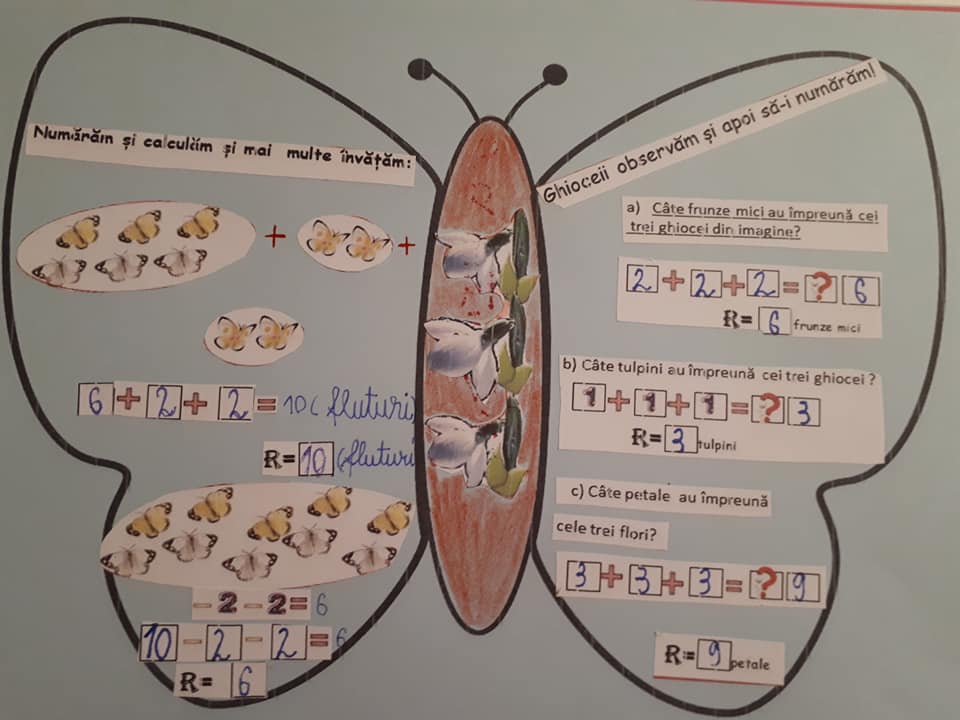 Numărăm și calculăm și mai multe învățăm:
+ +
6 + 2 + 2 = 10 (fluturi)
R= 10 (fluturi
- 2 - 2 = 6
10 - 2 - 2 = 6
R= 6
Ghioceii observăm și apoi să-i numărăm!
a) Câte frunze mici au împreună cei
trei ghiocei din imagine?
2 + 2 + 2 = ? 6
R= 6 frunze mici
b) Câte tulpini au împreună cei trei ghiocei ?
1 + 1 + 1 = ? 3
R= 3 tulpini
c) Câte petale au împreună
cele trei flori?
3 + 3 + 3 = ? 9
R= 9 petale